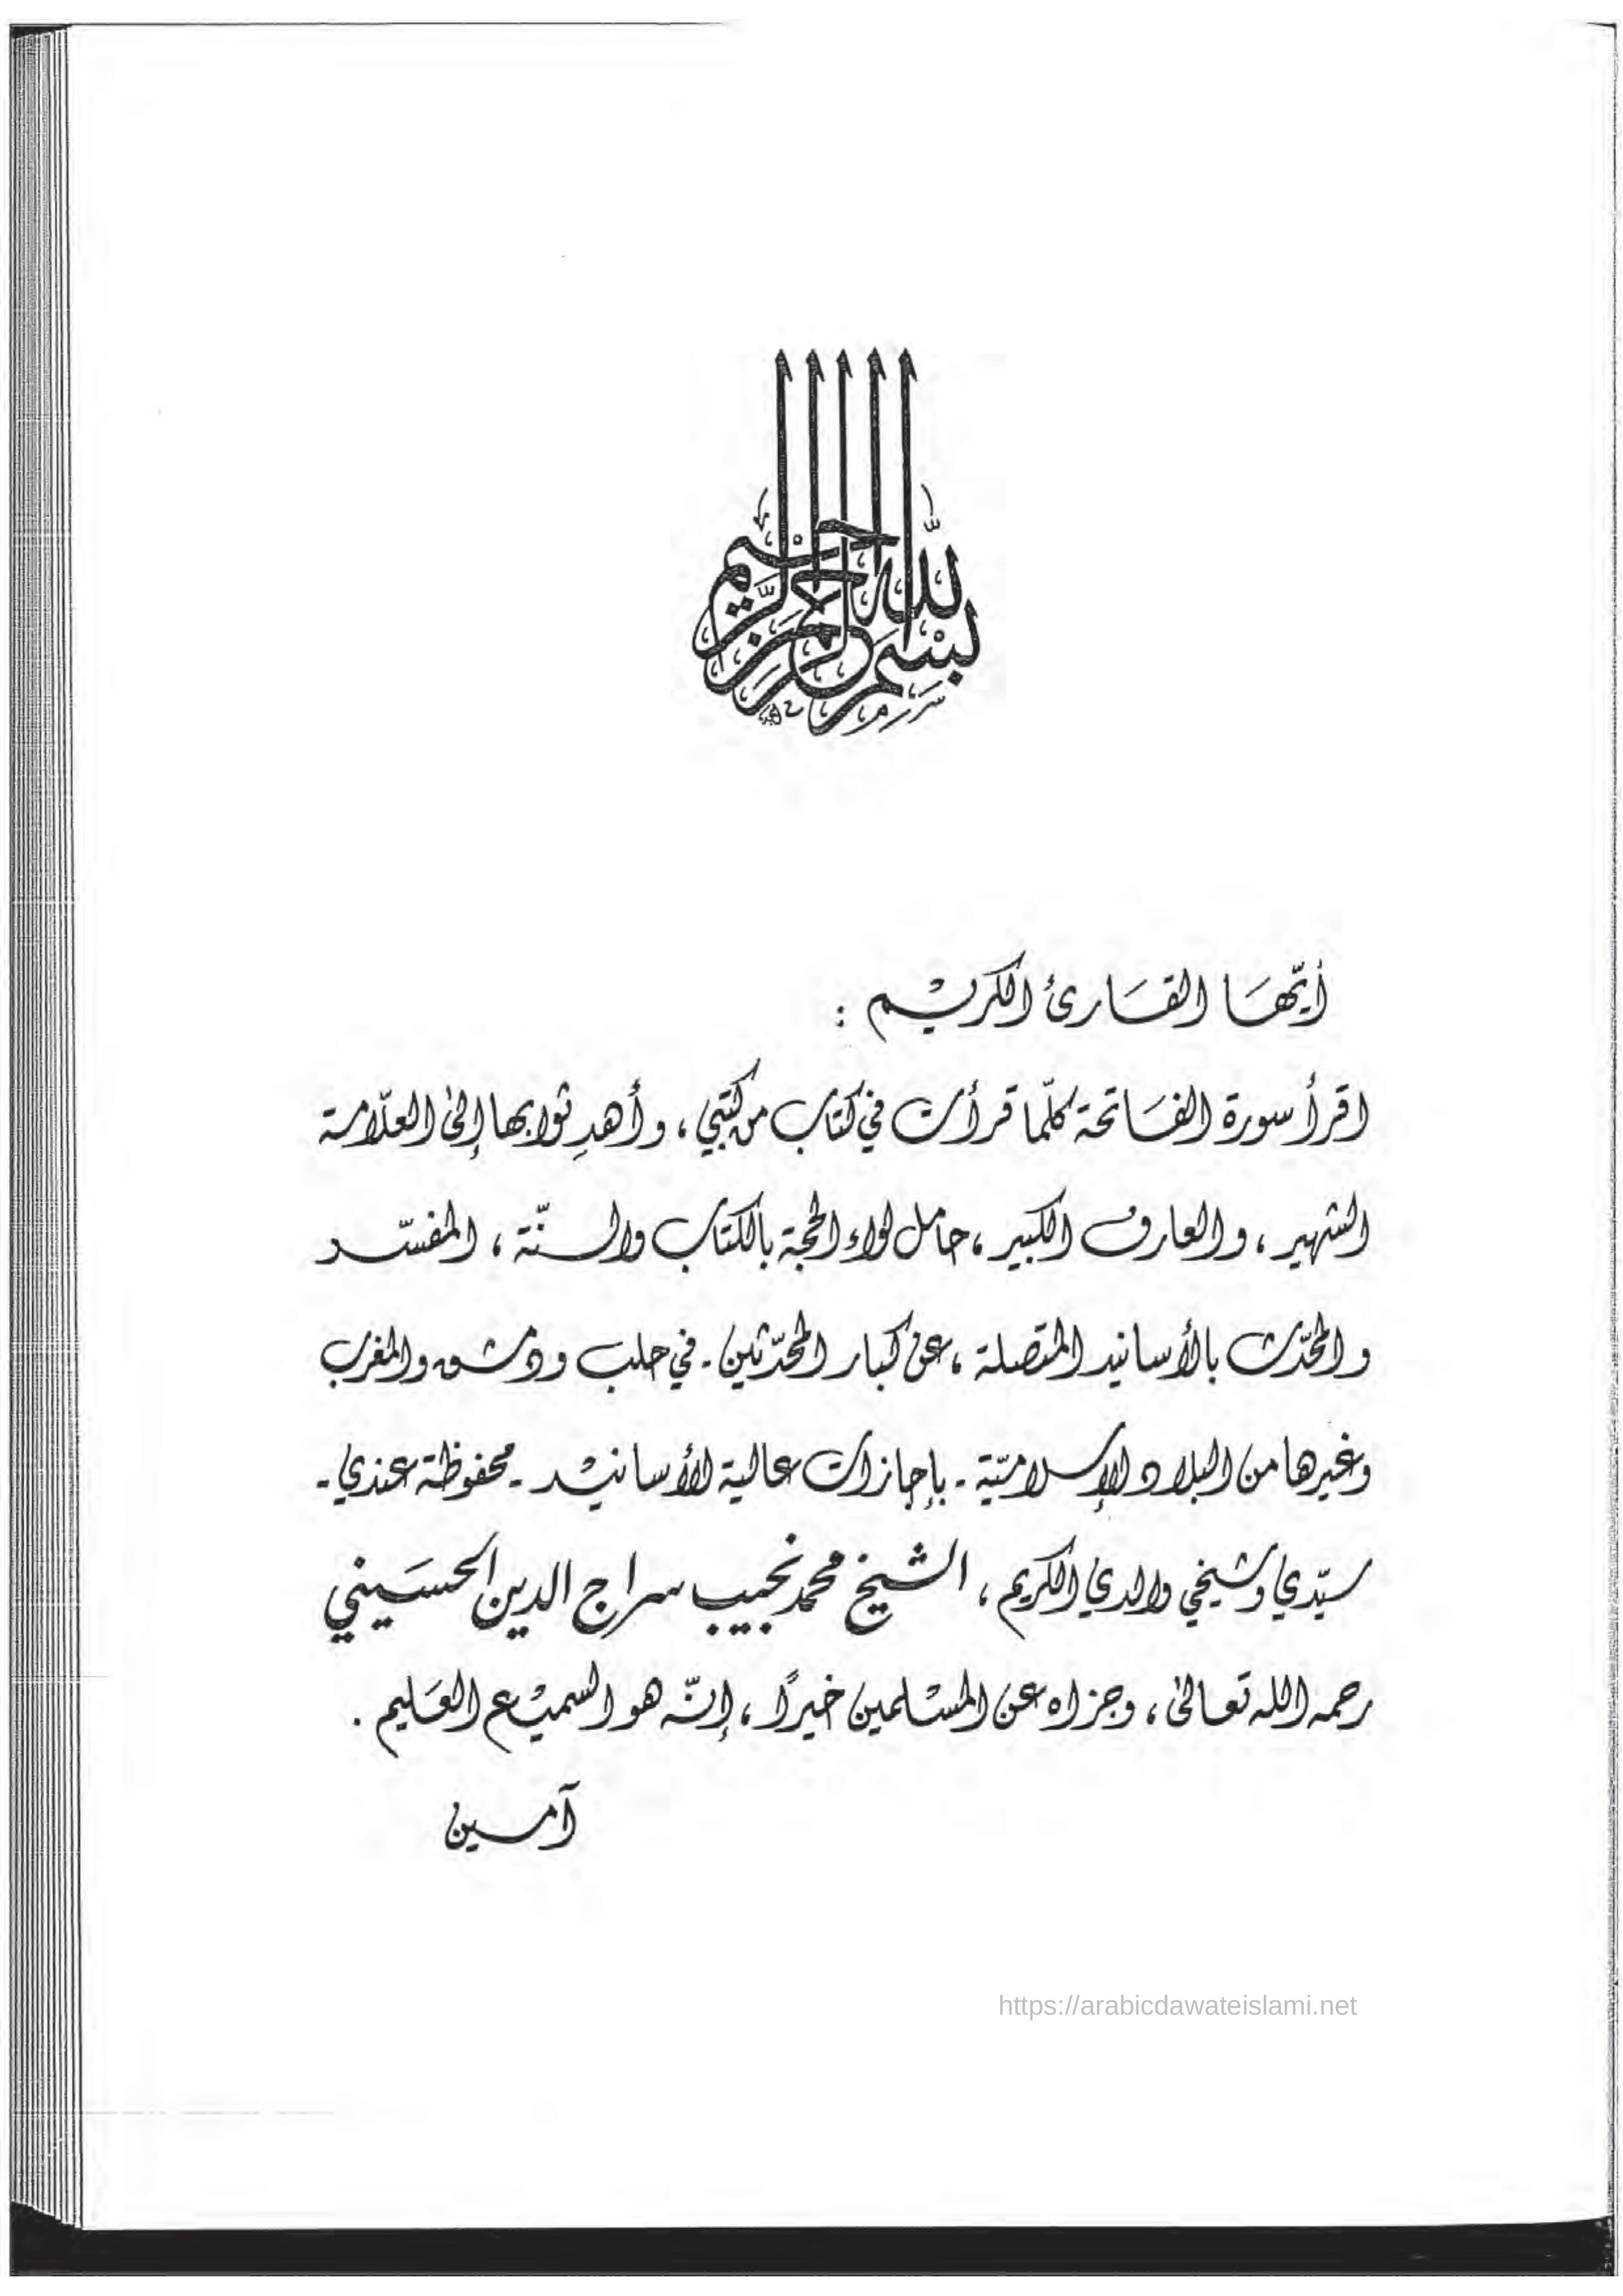 بِسْمِ اللهِ الرَّحْمٰنِ الرَّحِيْمِ
أيّهَا القَارئ الكريْم :
اقرأ سورة الفَاتحة كلّما قرأت في كتاب من كتبي ، وأهدِ ثوابها إلىٰ العلّامة
الشهير ، والعارف الكبير ، حامل لواء الحجة بالكتاب والسنّة ، المفسّر
والمحدّث بالأسانيد المتصلة ، عن كبار المحدّثين - في حلب ودمشق والمغرب
وغيرها من البلاد الإسلاميّة - بإجازات عالية الأسانيْد - محفوظة عندي -
سيّدي وشيخي والدي الكريم ، الشيخ محمد نجيب سراج الدين الحسَيني
رحمه الله تعالىٰ ، وجزاه عن المسْلمين خيرًا ، إنّه هو السميْع العَليم .
آمين
https://arabicdawateislami.net